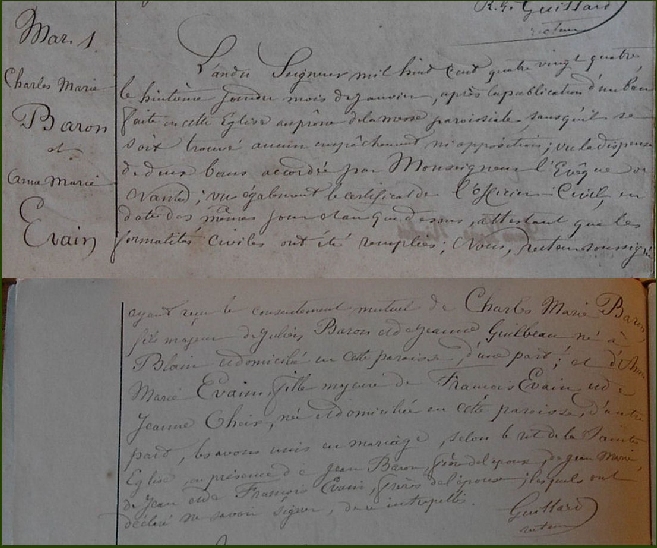 R. G. Guillard
recteur
Mar. 1
Charles Marie
Baron
et
Anna Marie
Evain
L'an du Seigneur mil huit cent quatre vingt quatre,
le huitième jour du mois de janvier, après la publication d'un ban
faite en cette Eglise au prône de la messe paroissiale sans qu'il se
soit trouvé aucun empêchement ni opposition; vu la dispense
de deux bans accordée par Monseigneur l'Evêque de
Nantes; vu également le certificat de l'Officier Civil en
date des mêmes jour et an que dessus, attestant que les
formalités civiles ont été remplies; Nous, recteur soussigné
ayant reçu le consentement mutuel de Charles Marie Baron
fils majeur de Julien Baron et de Jeanne Guilbeau né à
Blain et domicilié en cette paroisse, d'une part; et d'Anna
Marie Evain, fille mineure de François Evain et de
Jeanne, née et domiciliée en cette paroisse, d'autre
part, les avons unis en mariage, selon le rit de la Sainte
Eglise en présence de Jean Baron, frère de l'époux, de Jean Marie,
de Jean et de François Evain, frères de l'épouse; lesquels ont
déclaré ne savoir signer, de ce interpellés.
Guillard
recteur